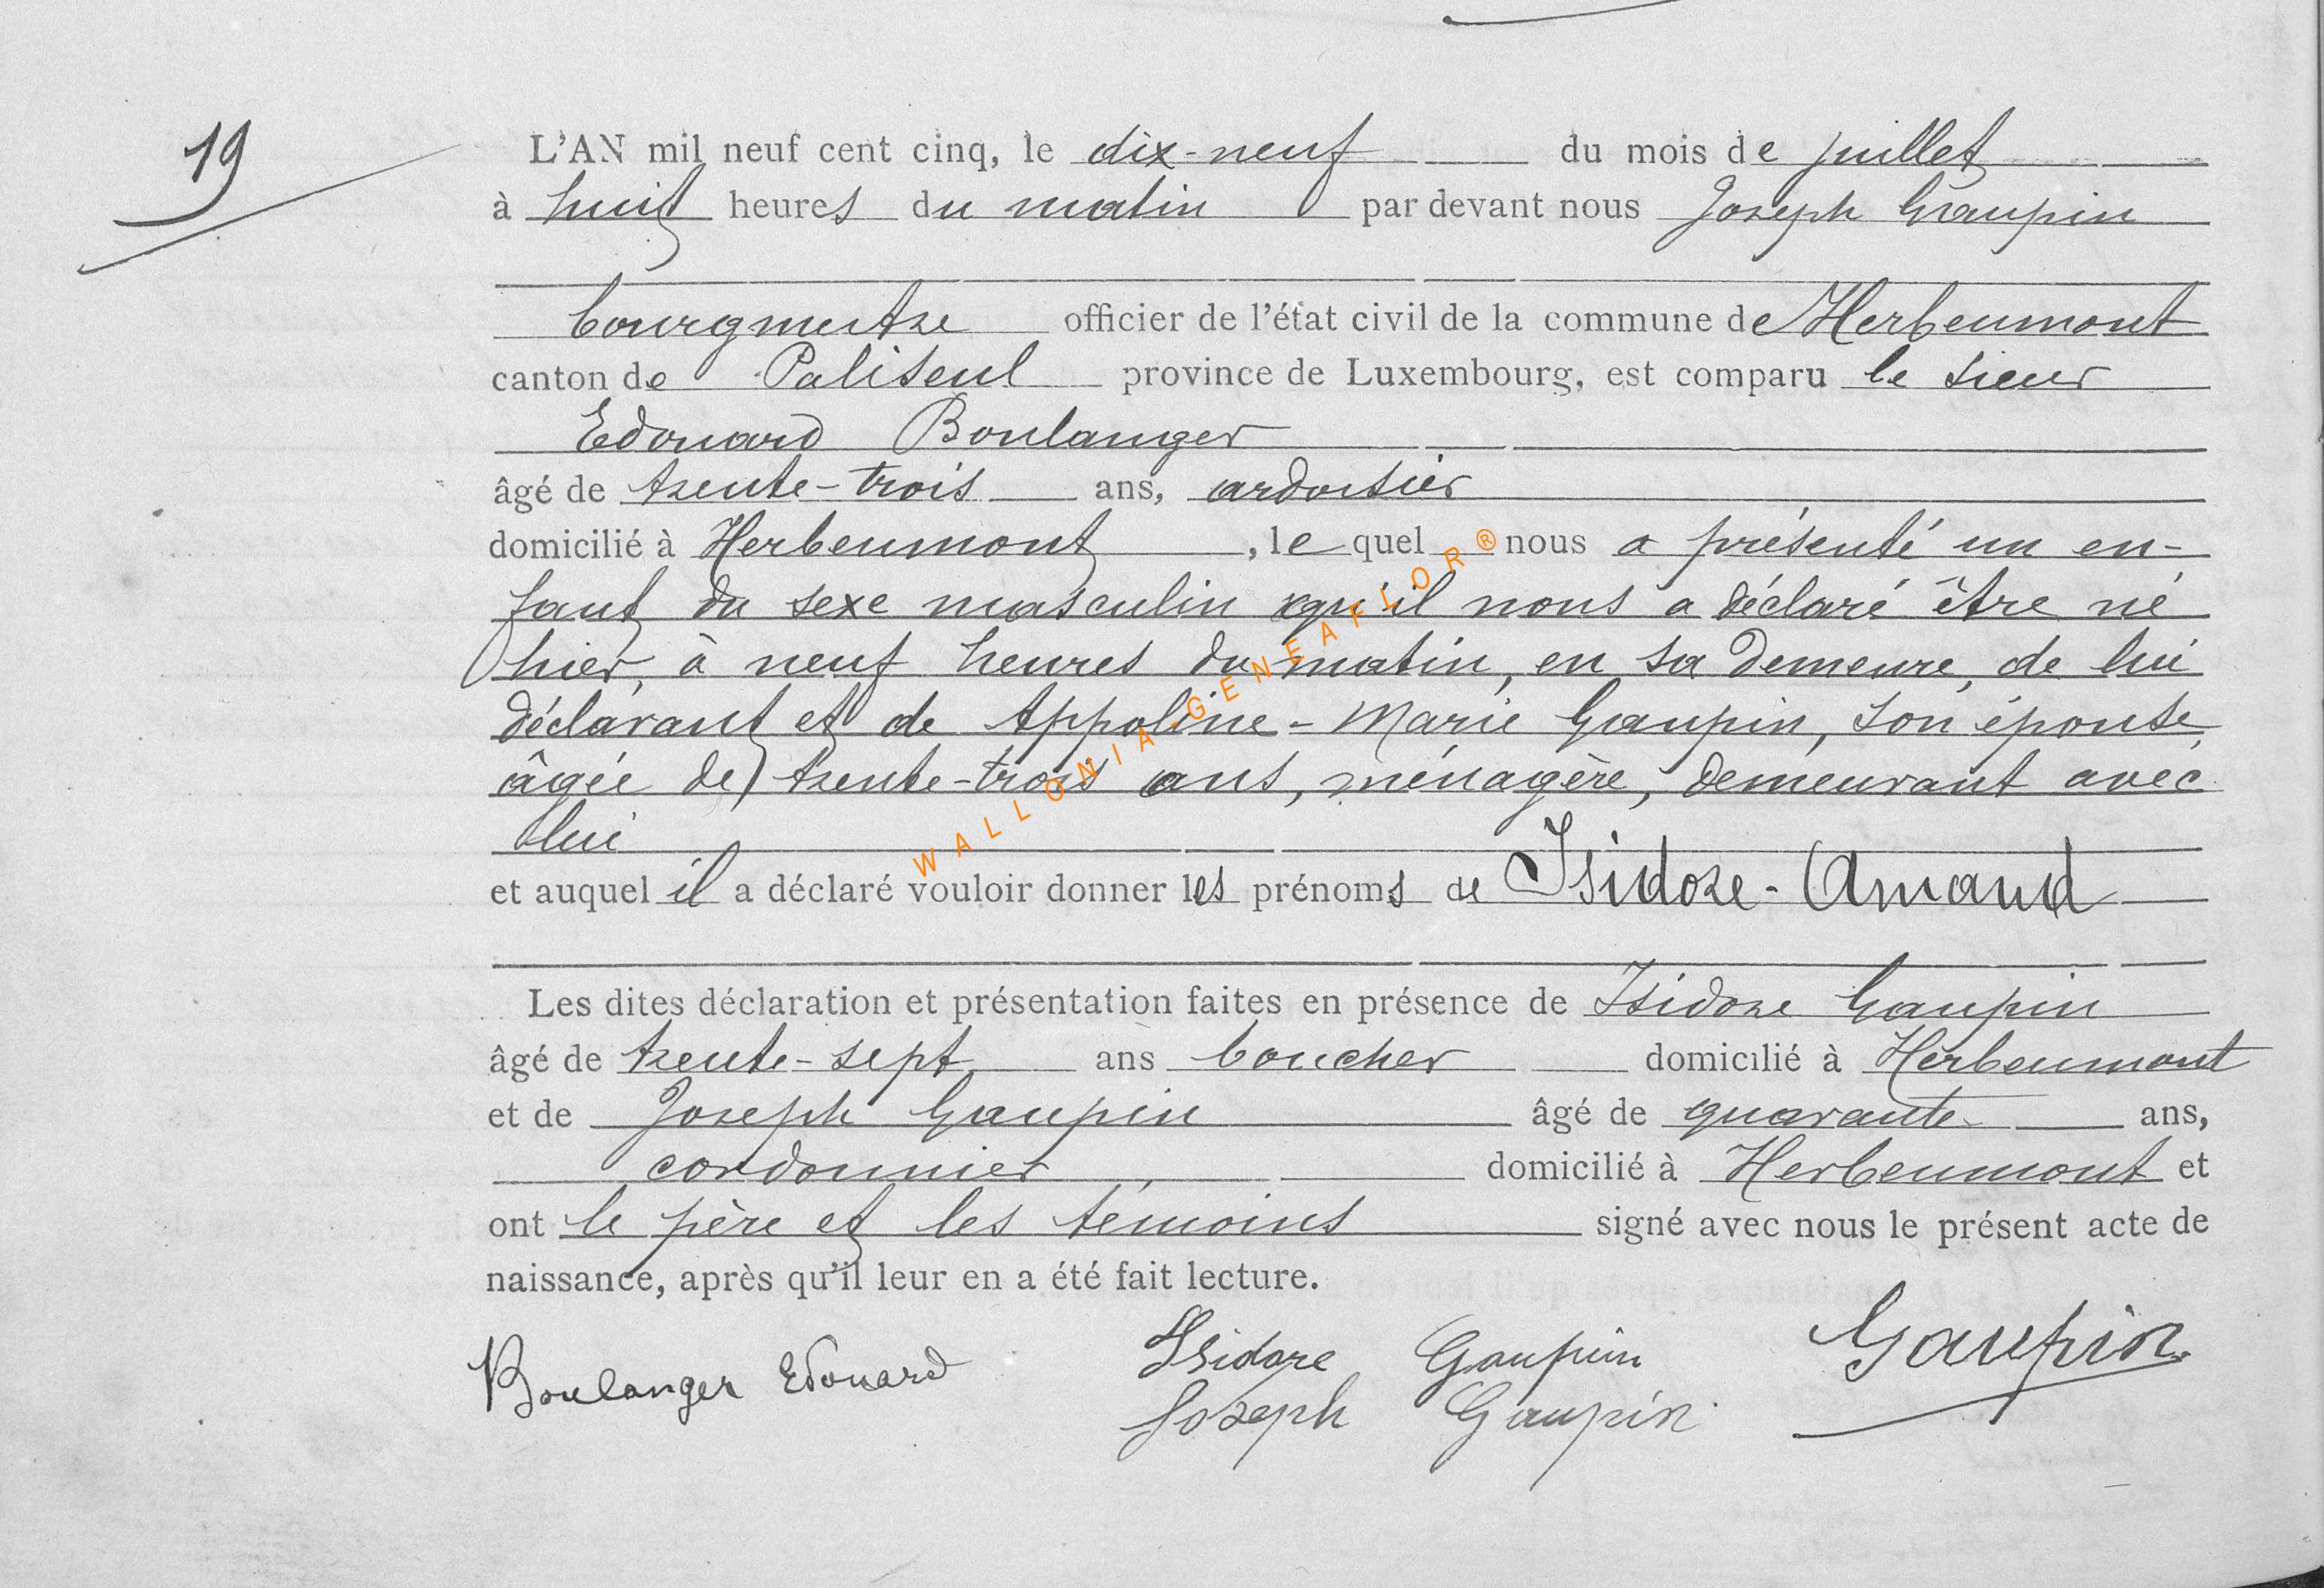 19
L'AN mil neuf cent cinq, le dix-neuf du mois de juillet
à huit heures du matin par devant nous Joseph Gaupin
bourgmestre officier de l'état civil de la commune de Herbeumont
canton de Paliseul province de Luxembourg, est comparu le sieur
Edouard Boulanger
âgé de trente-trois ans, ardoisier
domicilié à Herbeumont, le quel nous a présenté un en-
fant du sexe masculin qu'il nous a déclaré être né
hier, à neuf heures du matin, en sa demeure, de lui
déclarant et de Appoline-Marie Gaupin, son épouse,
âgée de trente-trois ans, ménagère, demeurant avec
lui
et auquel il a déclaré vouloir donner les prénoms de Isidore-Amand
Les dites déclaration et présentation faites en présence de Isidore Gaupin
âgé de trente-sept ans boucher domicilié à Herbeumont
et de Joseph Gaupin âgé de quarante ans,
cordonnier, domicilié à Herbeumont et
ont le père et les témoins signé avec nous le présent acte de
naissance, après qu'il leur en a été fait lecture.
Boulanger Edouard Isidore Gaupin Gaupin
Joseph Gaupin
WALLONIA-GENEAFLOR®